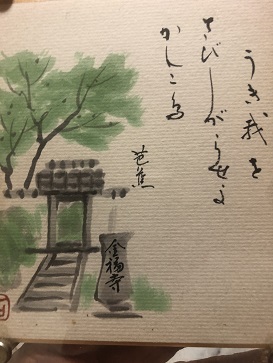 うき我を
さびしがらせよ
かんこ鳥
芭蕉
金福寺